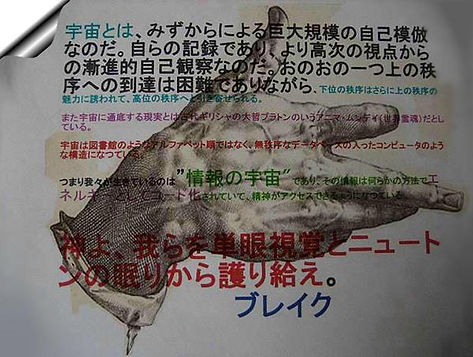 宇宙とは、みずからによる巨大規模の自己模倣
なのだ。自らの記録であり、より高次の視点から
の漸進的自己観察なのだ。おのおの一つ上の秩
序への到達は困難でありながら、下位の秩序はさらに上の秩序の
魅力に誘われて、高位の秩序へと引き寄せられる。
また宇宙に通底する現実とは古代ギリシャの大哲プラトンのいうアニマ・ムンディ(世界霊魂)だとし
ている。
宇宙は図書館のようなアルファベット順ではなく、無秩序なデータベースの入ったコンピュータのよう
な構造になっている。
つまり我々が生きているのは"情報の宇宙"であり、その情報は何らかの方法でエ
ネルギーとしてコード化されていて、精神がアクセスできるようになっている。
神よ、我らを単眼視覚とニュート
ンの眠りから護り給え。
ブレイク